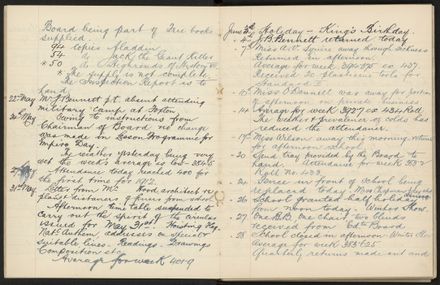 Board being part of free books
supplied.
94 copies Aladdin
94 " Jack the Giant Killer
50 " Highroads of History
The supply is not complete.
The Inspection Report is to
hand.
22nd May Mr J. Bennett J.P. absent attending
military Camp at
24th May Owing to instructions from
Chairman of Board no change
was made in Lesson Programme for
Empire Day.
The weather yesterday being very
wet the week's average is but
Attendance today reached 400 for
the second time for 1912.
31st May Letter from Mr Hood architect re
distances of furnace from school
Afternoon time table suspended to
carry out the spirit of the circular
issued for May 31st. Hoisting flag
Natl Anthem, addresses on special &
suitable lines. Readings. Drawings
Composition etc.
Average for week 401.9
June 3rd Holiday - King's Birthday.
4th J.B. Bennett returned today
7th Miss A.C. Squire away through sickness
Returned in afternoon.
Average for week 392.25 ex 427
Received 20 plasticine tools for
Standard I.
10th Miss O'Donnell was away for portion
of afternoon on private business
14 Average for week 392.7 ex 434 Roll.
The weather & prevalence of colds has
reduced the attendance.
17th Miss Wilson away this morning, returned
for afternoon school.
20 Sand tray provided by the Board to
hand. Attendance for week 387
Roll No. 433.
24 Fence in front of school being
replaced today.
26 School granted half holiday
from noon today - Winter Show.
27 One B.B. one chair, two blinds
received from Edn Board
28 School closed in afternoon - Winter Show
Average for week 383.625
Quarterly returns made out and